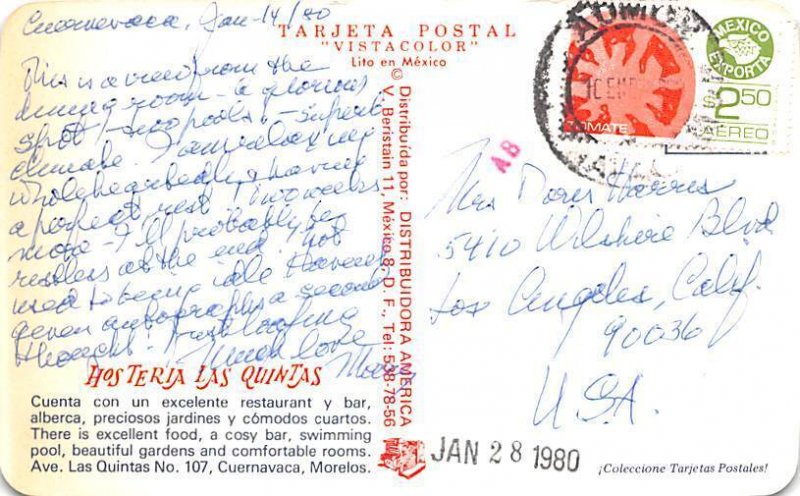 Cuernavaca, Jan 14/80
This is a view from the
dining room - a glorious
spot - two pools - superb
climate. I am relaxing
wholeheartedly & having
a perfect rest. Two weeks
more - I'll probably be
restless at the end. Not
used to being idle. Haven't
given autographs a second
thought. Just loafing
Much love
HOSTERIA LAS QUINTAS
Cuenta con un excelente restaurant y bar,
alberca, preciosos jardines y cómodos cuartos.
There is excellent food, a cosy bar, swimming
pool, beautiful gardens and comfortable rooms.
Ave. Las Quintas No. 107, Cuernavaca, Morelos.
TARJETA POSTAL
"VISTACOLOR"
Lito en México
© Distribuída por: DISTRIBUIDORA AMERICA
V. Beristain 11, México 8, D. F., Tel: 538-78-56
MEXICO
EXPORTA
$2.50
AÉREO
TOMATE
AB
Mrs Doris Harris
5410 Wilshire Blvd
Los Angeles, Calif.
90036
U.S.A.
JAN 28 1980
¡Coleccione Tarjetas Postales!